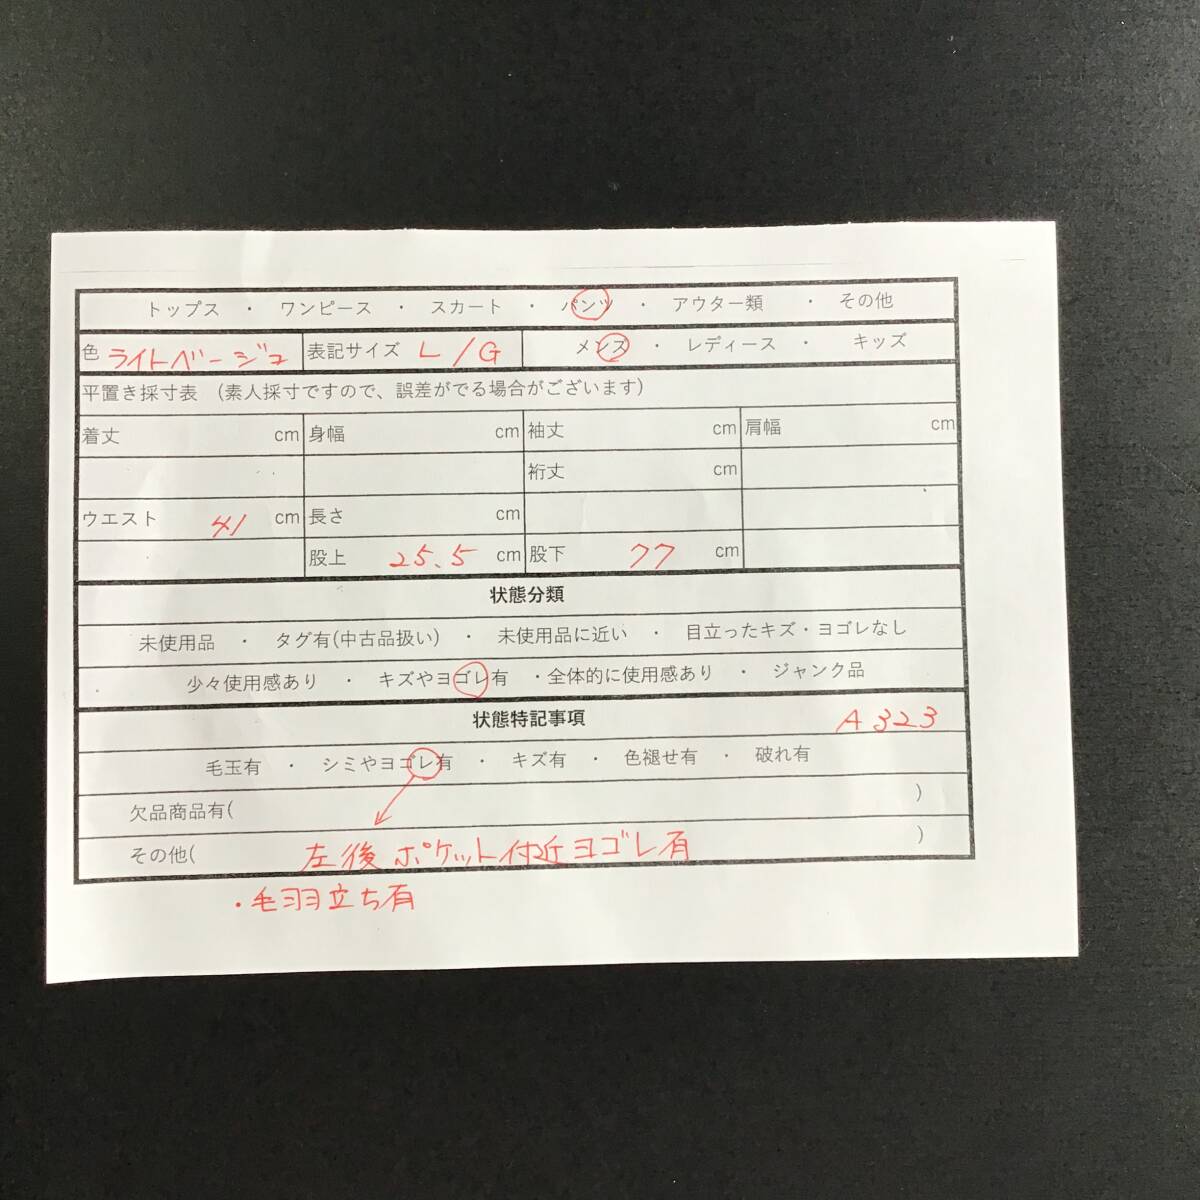 トップス ・ ワンピース ・ スカート ・ パンツ ・ アウター類 ・ その他
色 ライトベージュ 表記サイズ L/G メンズ ・ レディース ・ キッズ
平置き採寸表 （素人採寸ですので、誤差がでる場合がございます）
着丈 cm 身幅 cm 袖丈 cm 肩幅 cm
裄丈 cm
ウエスト 41 cm 長さ cm
股上 25.5 cm 股下 77 cm
状態分類
未使用品 ・ タグ有(中古品扱い) ・ 未使用品に近い ・ 目立ったキズ・ヨゴレなし
少々使用感あり ・ キズやヨゴレ有 ・全体的に使用感あり ・ ジャンク品
状態特記事項 A323
毛玉有 ・ シミやヨゴレ有 ・ キズ有 ・ 色褪せ有 ・ 破れ有
欠品商品有( )
その他( 左後ポケット付近ヨゴレ有 )
・毛羽立ち有